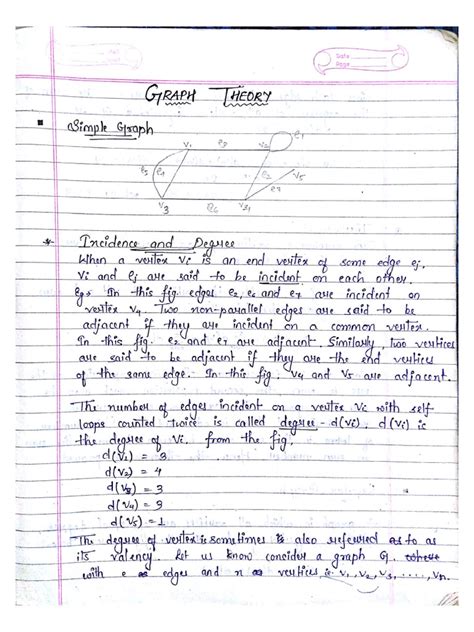 Date
Page
GRAPH THEORY
Simple Graph
e1
v1
v2
v5
e2
e7
v3
e6
Incidence and Degree
When a vertex Vi is an end vertex of some edge ej,
Vi and ej are said to be incident on each other.
Eg→ In this fig edges e2, e6 and e7 are incident on
vertex V4. Two non-parallel edges are said to be
adjacent if they are incident on a common vertex.
In this fig. e2 and e7 are adjacent. Similarly, two vertices
are said to be adjacent if they are the end vertices
of the same edge. In this fig. V4 and V5 are adjacent.
The number of edges incident on a vertex Vi with self
loops counted twice is called degree - d(Vi), d(Vi) is
the degree of Vi. from the fig.
d(V1) = 3
d(V2) = 4
d(V3) = 3
d(V4) =
d(V5) = 1
The degree of vertex is sometimes is also referred as to as
its valency. Let us know consider a graph G.
with e as edges and n as vertices v1, v2, v3, ...., vn.